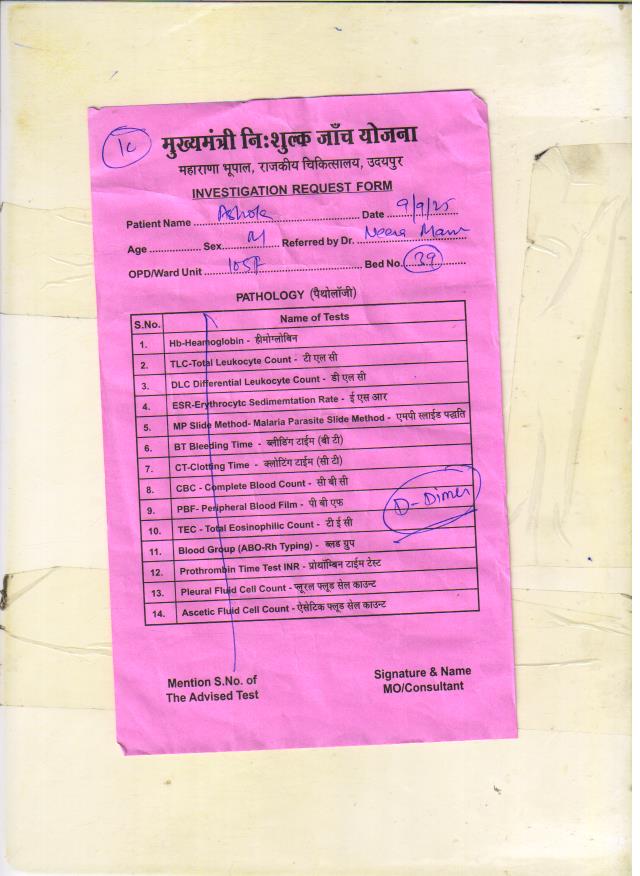 1c
मुख्यमंत्री निःशुल्क जाँच योजना
महाराणा भूपाल, राजकीय चिकित्सालय, उदयपुर
INVESTIGATION REQUEST FORM
Patient Name Ashok Date 9/9/25
Age Sex M Referred by Dr. Neera
OPD/Ward Unit Bed No. 39
PATHOLOGY (पैथोलॉजी)
S.No. Name of Tests
1. Hb-Heamoglobin - हीमोग्लोबिन
2. TLC-Total Leukocyte Count - टी एल सी
3. DLC Differential Leukocyte Count - डी एल सी
4. ESR-Erythrocytc Sedimemtation Rate - ई एस आर
5. MP Slide Method- Malaria Parasite Slide Method - एमपी स्लाईड पद्धति
6. BT Bleeding Time - ब्लीडिंग टाईम (बी टी)
7. CT-Clotting Time - क्लोटिंग टाईम (सी टी)
8. CBC - Complete Blood Count - सी बी सी
9. PBF- Peripheral Blood Film - पी बी एफ
D-Dimer
10. TEC - Total Eosinophilic Count - टी ई सी
11. Blood Group (ABO-Rh Typing) - ब्लड ग्रुप
12. Prothrombin Time Test INR - प्रोथॉम्बिन टाईम टेस्ट
13. Pleural Fluid Cell Count - प्लूरल फ्लूड सेल काउन्ट
14. Ascetic Fluid Cell Count - ऐसेटिक फ्लूड सेल काउन्ट
Mention S.No. of Signature & Name
The Advised Test MO/Consultant